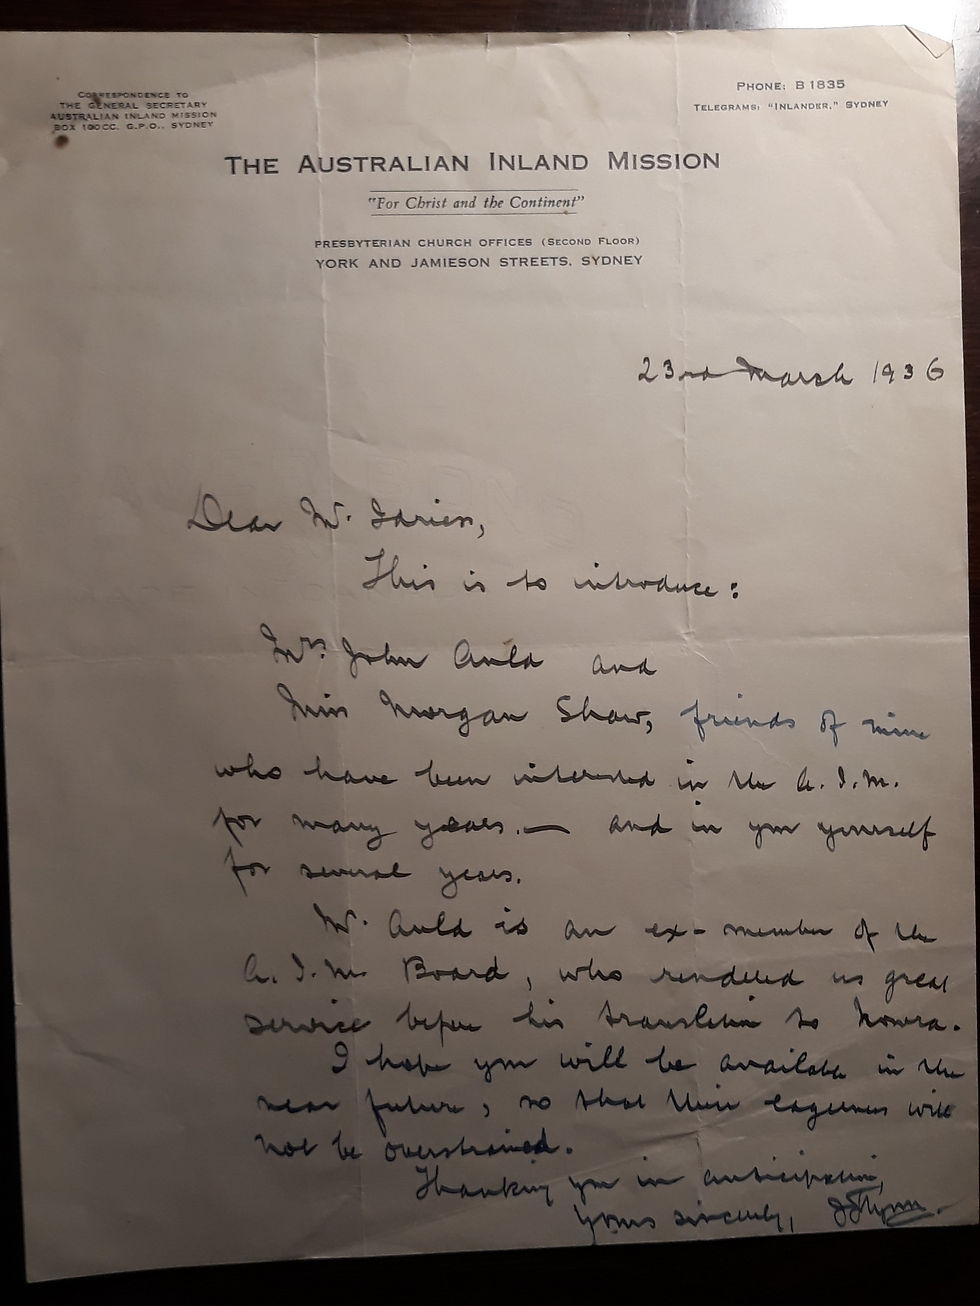 CORRESPONDENCE TO
THE GENERAL SECRETARY
AUSTRALIAN INLAND MISSION
BOX 100CC, G.P.O., SYDNEY
PHONE: B 1835
TELEGRAMS: "INLANDER," SYDNEY
THE AUSTRALIAN INLAND MISSION
"For Christ and the Continent"
PRESBYTERIAN CHURCH OFFICES (SECOND FLOOR)
YORK AND JAMIESON STREETS, SYDNEY
23rd March 1936
Dear Mr. Idriess,
This is to introduce:
Mrs. John Auld and
Miss Morgan Shaw, friends of mine
who have been interested in the A.I.M.
for many years. — and in you yourself
for several years.
Mr. Auld is an ex-member of the
A.I.M. Board, who rendered us great
service before his translation to Nowra.
I hope you will be available in the
near future, so that their eagerness will
not be overstrained.
Thanking you in anticipation,
Yours sincerely, J Flynn.